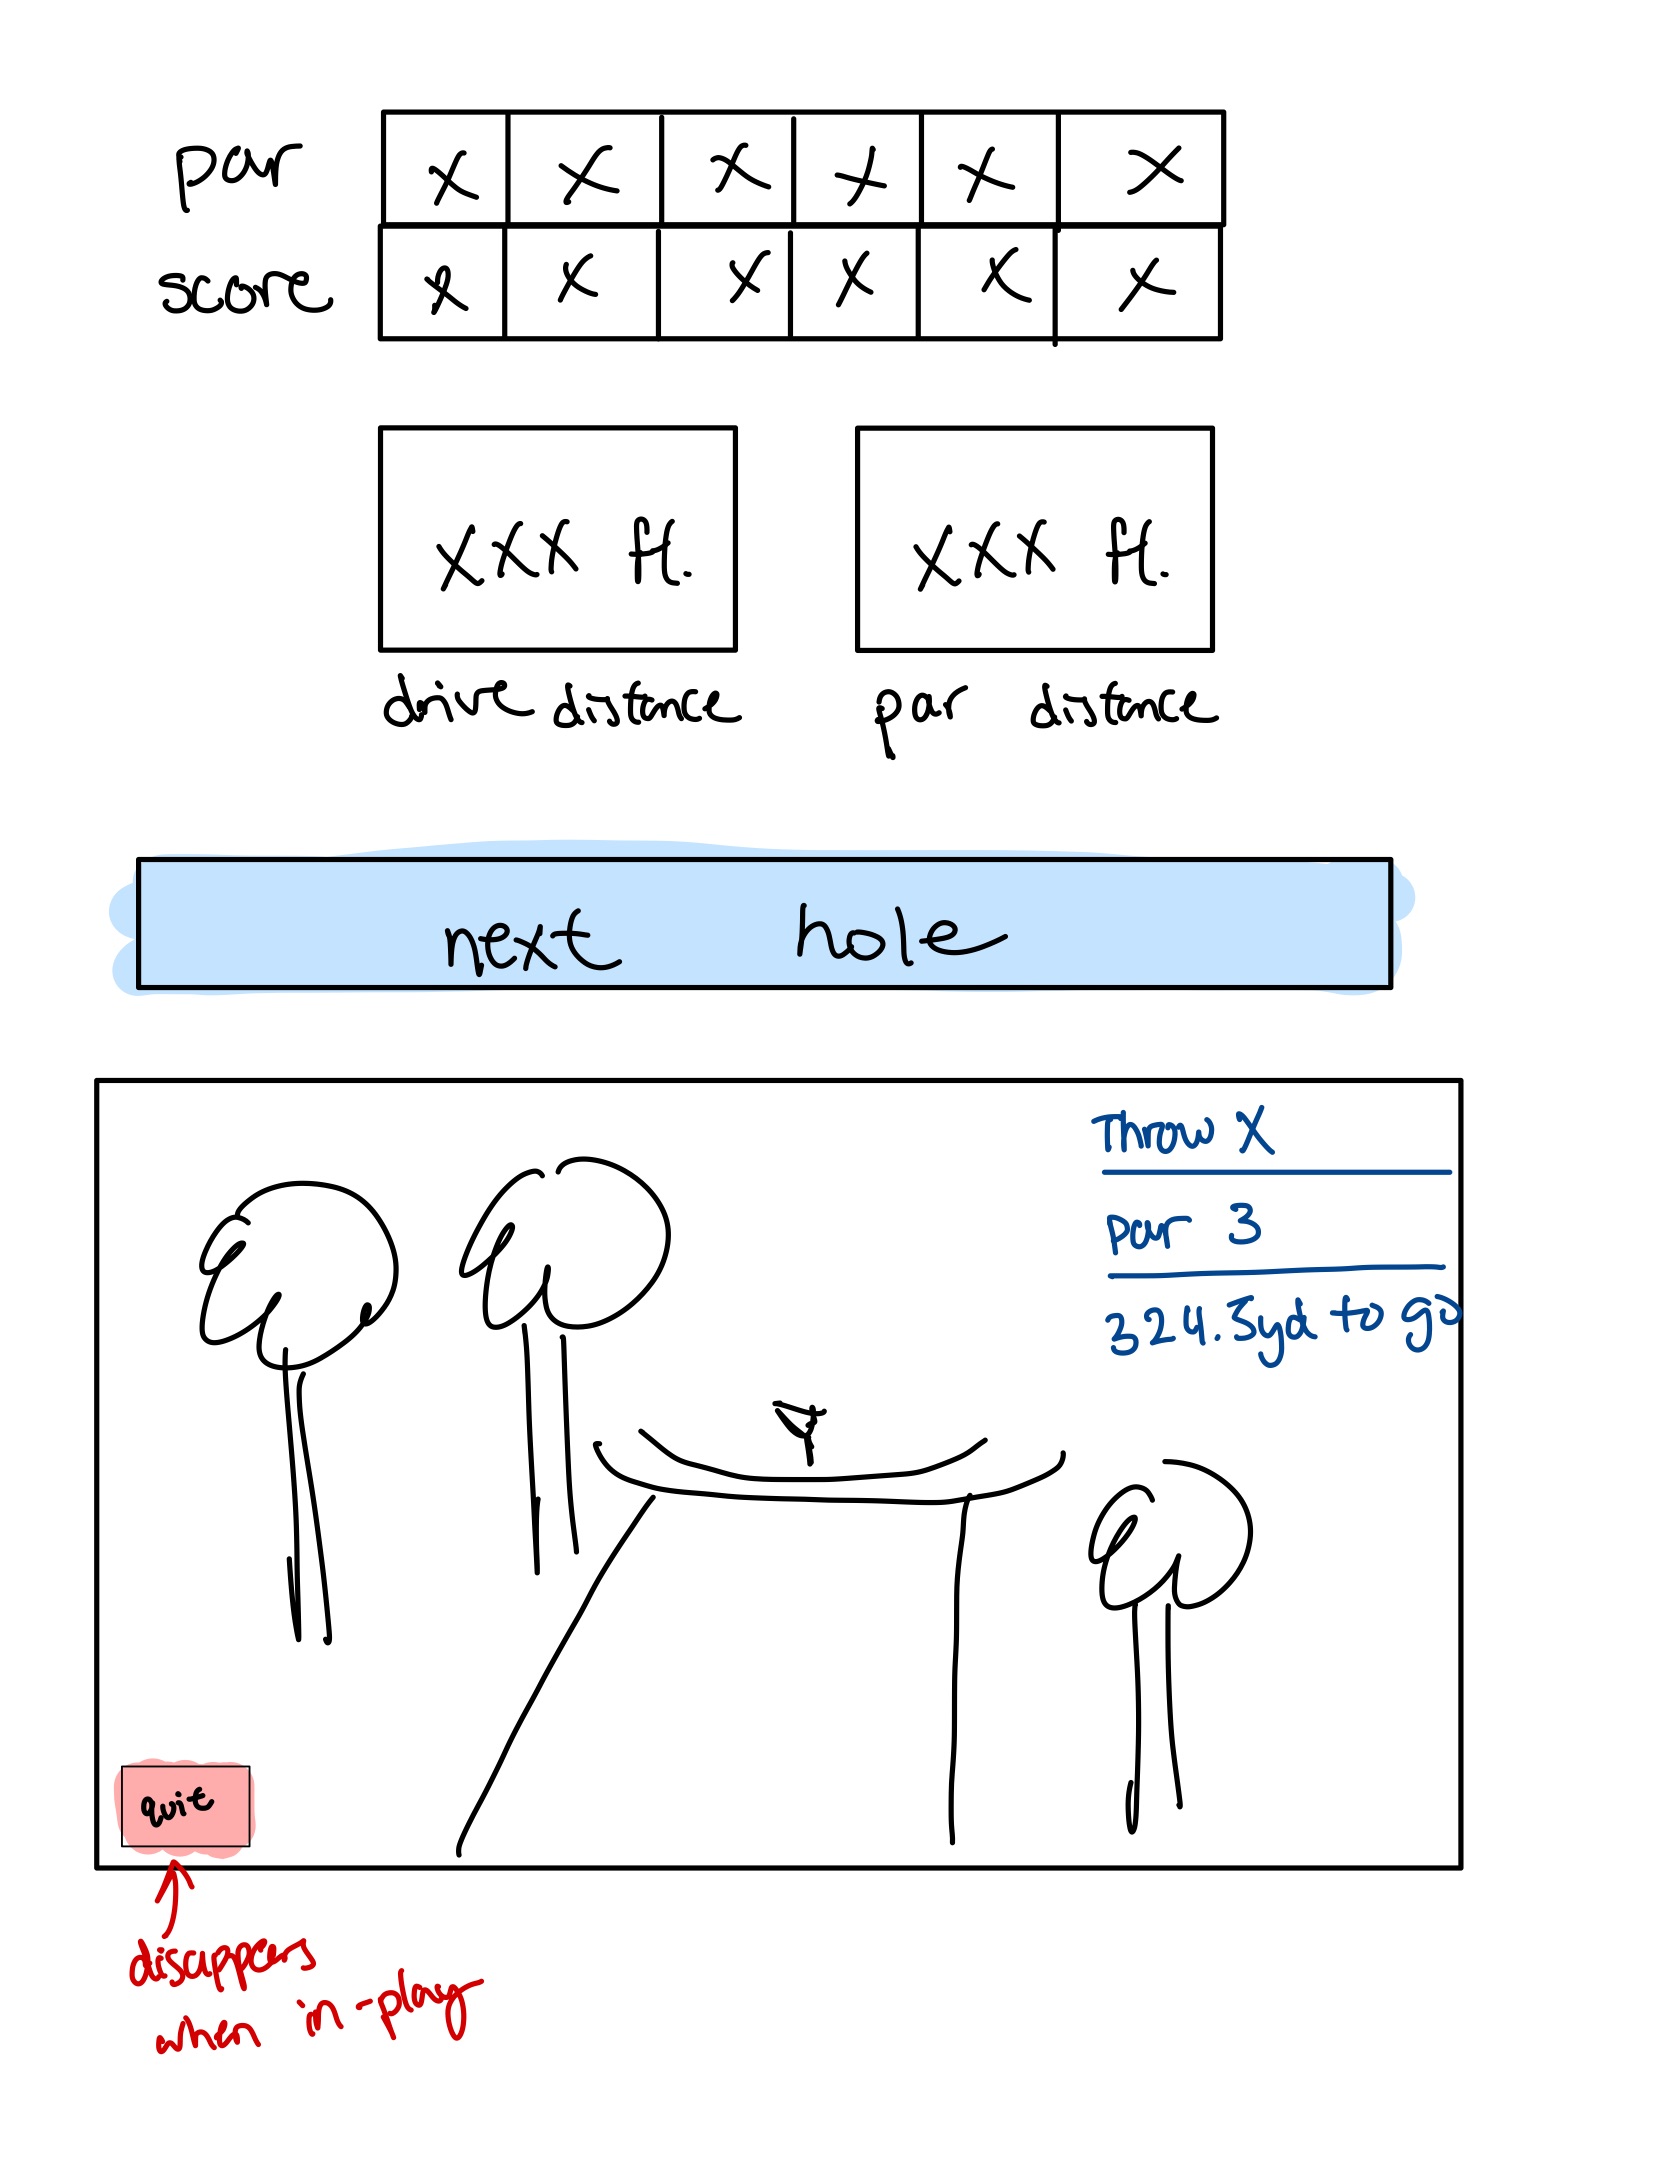 par X X X X X X
score X X X X X X
XXX ft. XXX ft.
drive distance par distance
next hole
Throw X
par 3
324.3yd to go
quit
disappears
when in-play